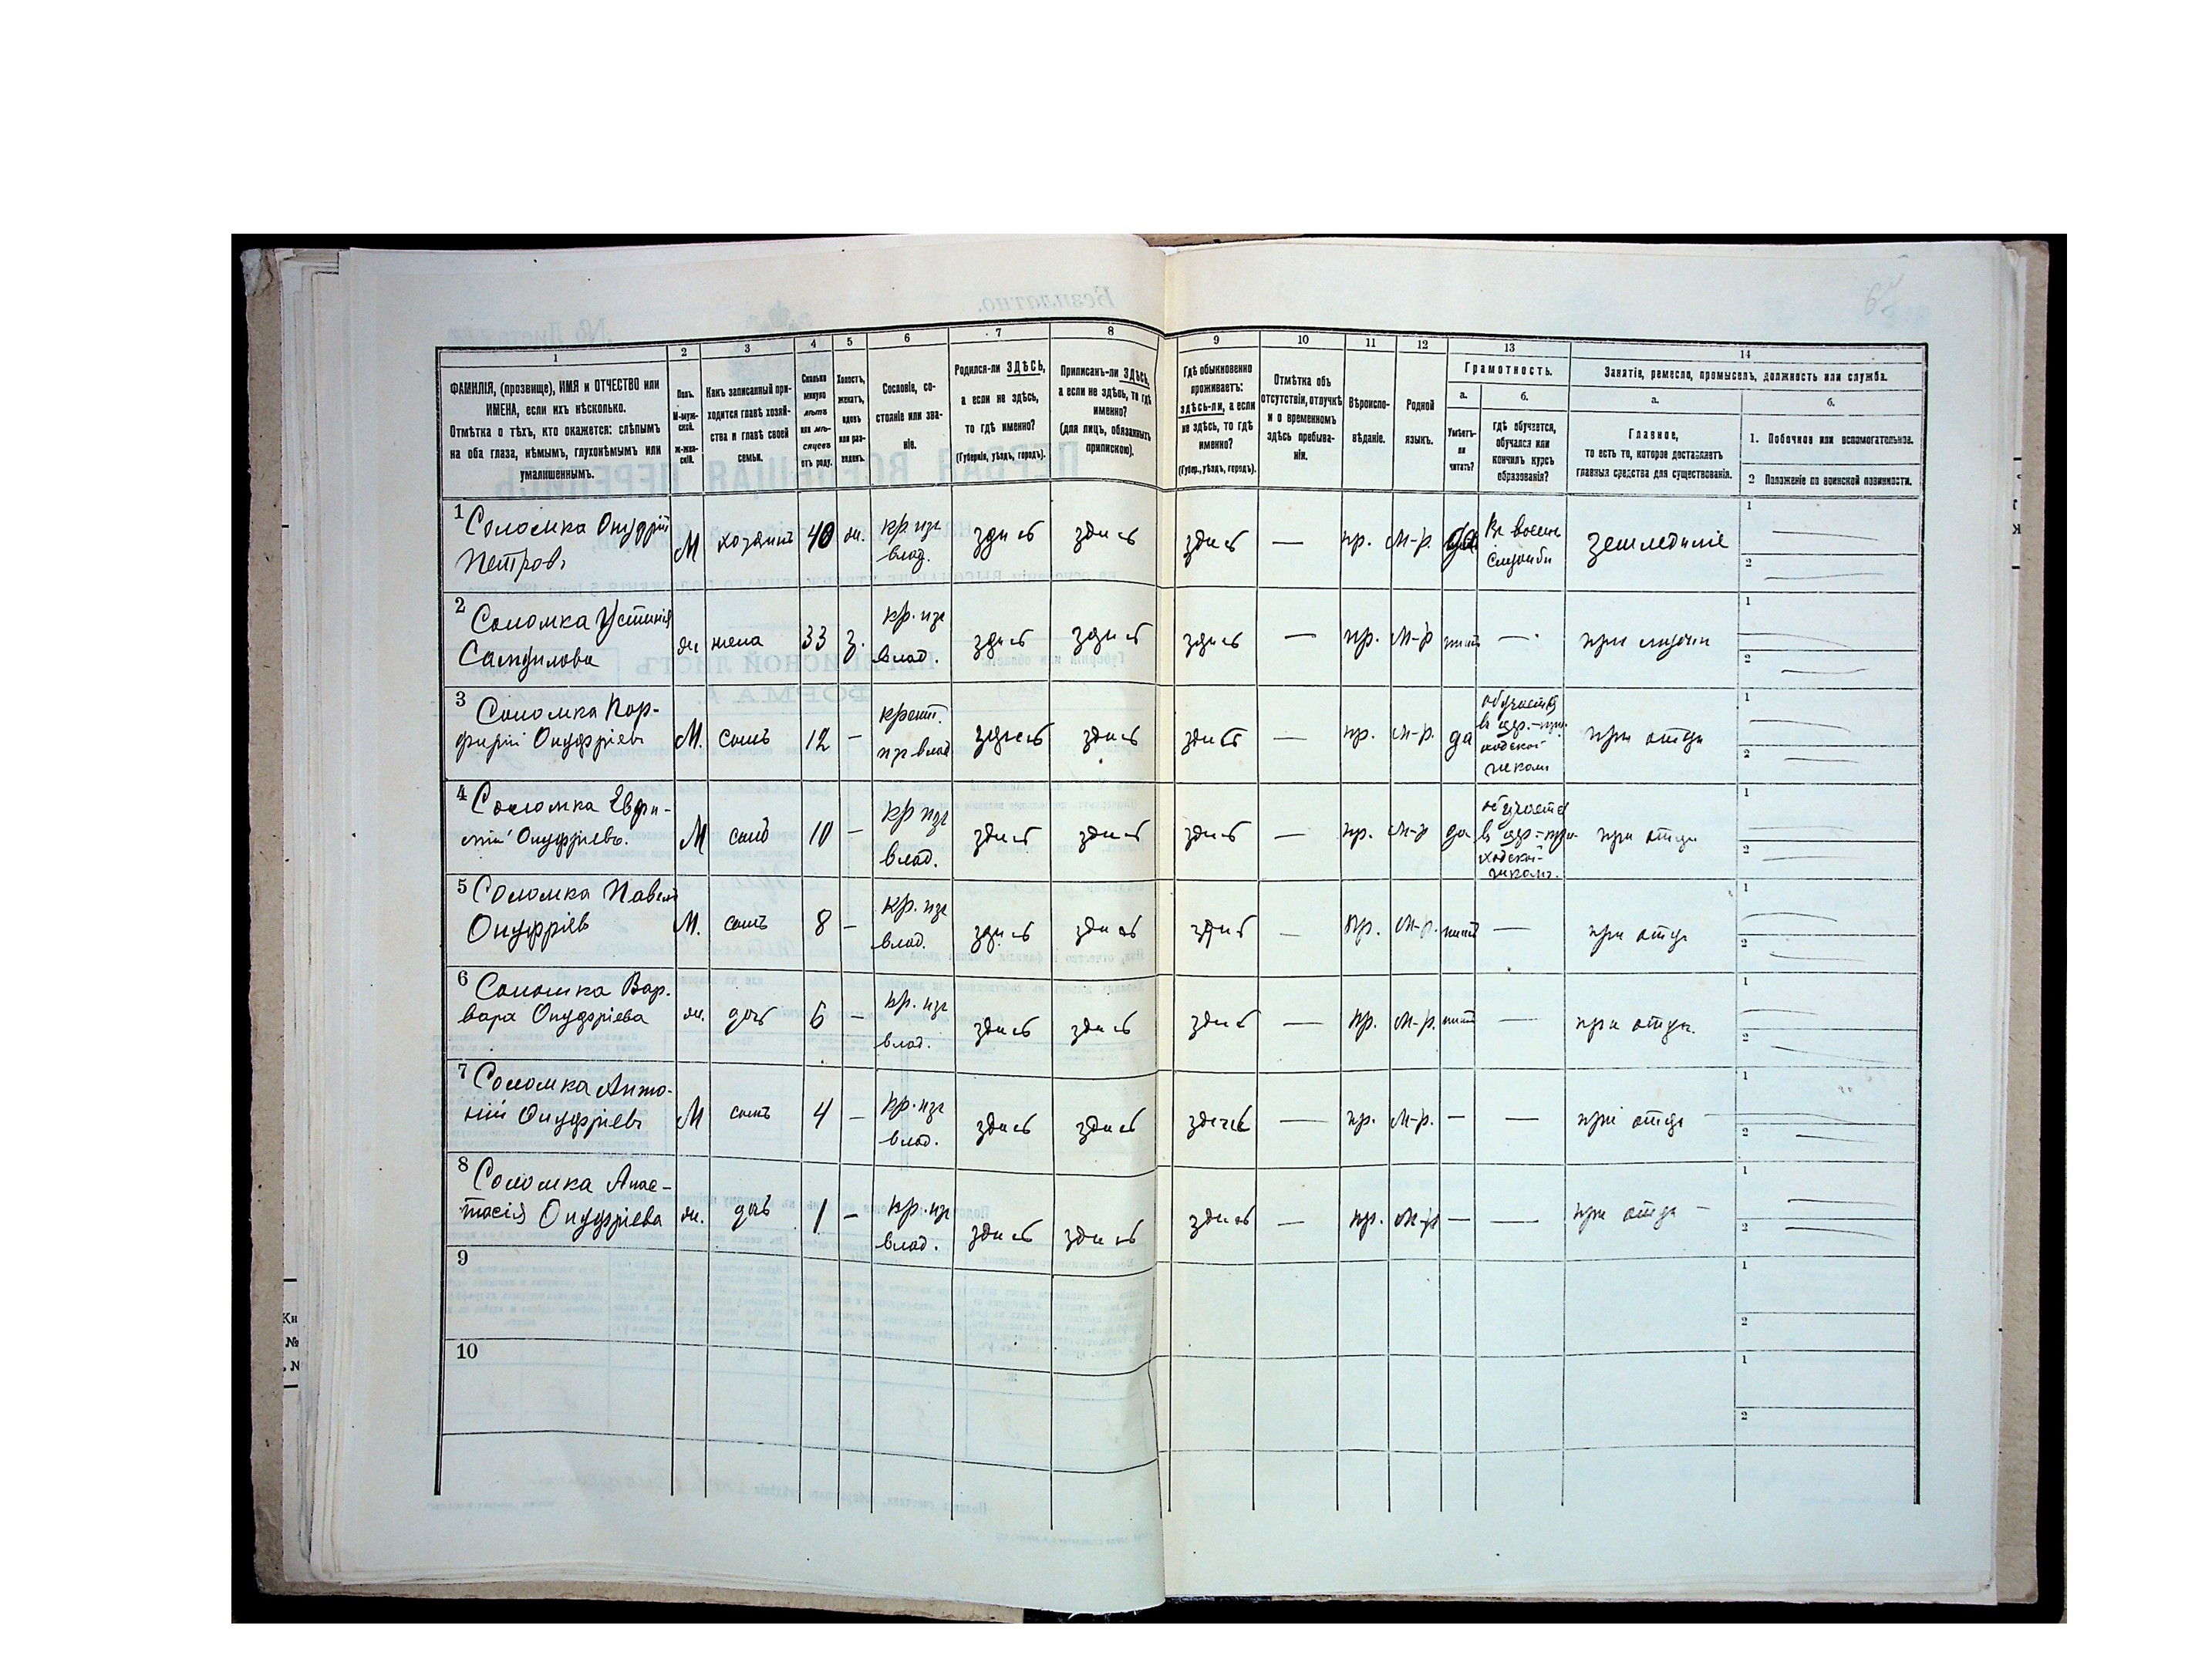 67
1 2 3 4 5 6 7 8 9 10 11 12 13 14
ФАМИЛІЯ, (прозвище), ИМЯ и ОТЧЕСТВО или
ИМЕНА, если ихъ нѣсколько.
Отмѣтка о тѣхъ, кто окажется: слѣпымъ
на оба глаза, нѣмымъ, глухонѣмымъ или
умалишеннымъ.
Полъ.
М-муж-
ской.
Ж-жен-
скій.
Какъ записанный при-
ходится главѣ хозяй-
ства и главѣ своей
семьи.
Сколько
минуло
лѣтъ
или мѣ-
сяцевъ
отъ роду.
Холостъ,
женатъ,
вдовъ
или раз-
веденъ.
Сословіе, со-
стояніе или зва-
ніе.
Родился-ли ЗДѢСЬ,
а если не здѣсь,
то гдѣ именно?
(Губернія, уѣздъ, городъ).
Приписанъ-ли ЗДѢСЬ,
а если не здѣсь, то гдѣ
именно?
(для лицъ, обязанныхъ
припискою).
Гдѣ обыкновенно
проживаетъ:
здѣсь-ли, а если
не здѣсь, то гдѣ
именно?
(Губер., уѣздъ, городъ).
Отмѣтка объ
отсутствіи, отлучкѣ
и о временномъ
здѣсь пребыва-
ніи.
Вѣроиспо-
вѣданіе.
Родной
языкъ.
Грамотность.
а.
Умѣетъ-
ли
читать?
б.
гдѣ обучается,
обучался или
кончилъ курсъ
образованія?
Занятіе, ремесло, промыселъ, должность или служба.
а.
Главное,
то есть то, которое доставляетъ
главныя средства для существованія.
б.
1. Побочное или вспомогательное.
2 Положеніе по воинской повинности.
1 Соломка Онуфрій
Петровъ
М хозяинъ 40 ж. кр. изъ
влад.
здись здись здись — пр. м-р. да Въ воен.
службѣ
земледиліе
1
2
2 Соломка Устинія
Самуилова
ж жена 33 з. кр. изъ
влад.
здись здись здись — пр. м-р нит — при мужи
1
2
3 Соломка Пор-
фирій Онуфріевъ
М. сынъ 12 — крест.
изъ влад
здись здись здись — пр. м-р. да обучается
въ цер.-при-
ходской
школи
при отци
1
2
4 Соломка Евфи-
мій Онуфріевъ.
М сынъ 10 — кр изъ
влад.
здись здись здись — пр. м-р да обучается
въ цер-при-
ходской
школи.
при отци
1
2
5 Соломка Павелъ
Онуфріев
М. сынъ 8 — кр. изъ
влад.
здись здись здись — пр. м-р. нит — при отци
1
2
6 Соломка Вар-
вара Онуфріева
ж. дочь 6 — кр. изъ
влад.
здись здись здись — пр. м-р. нит — при отци.
1
2
7 Соломка Анто-
ній Онуфріевъ
М сынъ 4 — кр. изъ
влад.
здись здись здись — пр. м-р. — — при отци
1
2
8 Соломка Анас-
тасія Онуфріева
ж. дочь 1 — кр. изъ
влад.
здись здись здись — пр. м-р — — при отци —
1
2
9
1
2
10
1
2